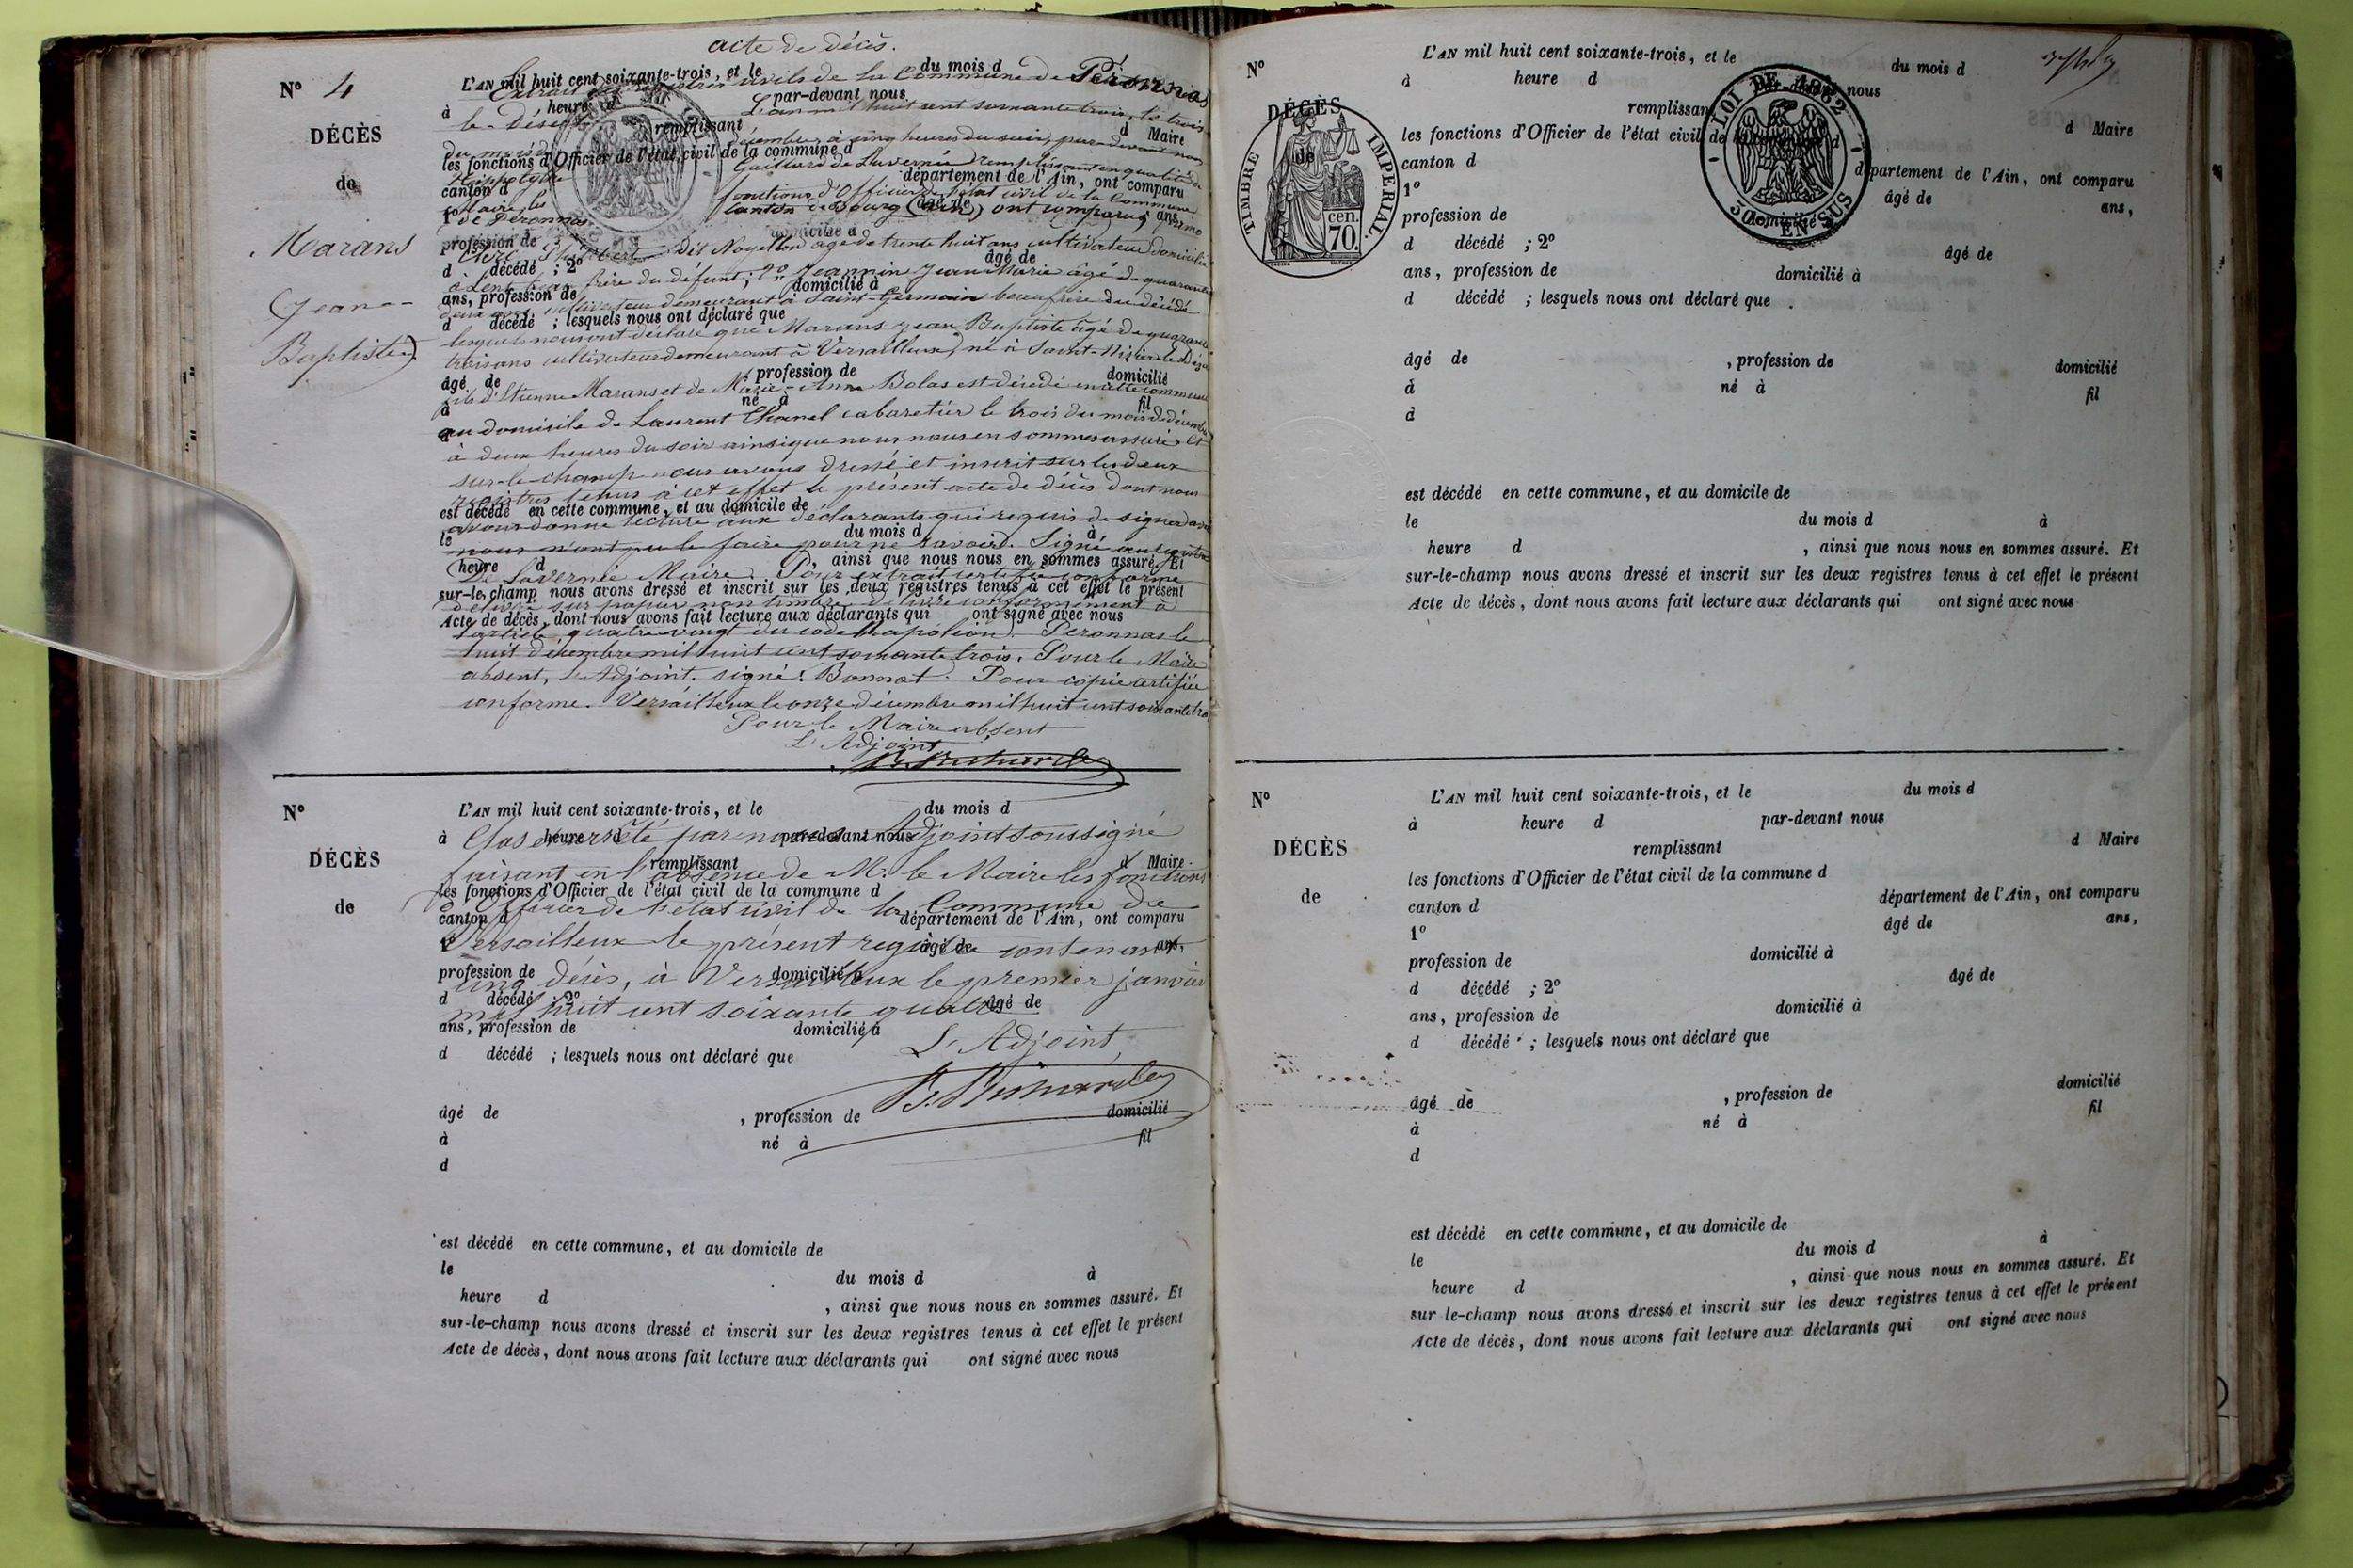 acte de décès.
N° 4
DÉCÈS
de
Marans
(Jean-
Baptiste)
L'AN mil huit cent soixante-trois, et le du mois d
Extrait des registres civils de la Commune de Péronnas
à heure d par-devant nous
L'an mil huit cent soixante trois, le trois
remplissant d Maire
du mois de décembre à cinq heures du soir, par devant nous
les fonctions d'Officier de l'état civil de la commune d
Hippolyte Gaillard de Lavernée remplissant en qualité de
canton d département de l'Ain, ont comparu
Maire les fonctions d'Officier de l'état civil de la Commune
1° âgé de ans,
de Péronnas canton de Bourg (Ain) ont comparu, primo
profession de domicilié à
dit Noyellon âgé de trente huit ans cultivateur domicilié
d décédé ; 2° âgé de
à frère du défunt; 2° Jeannin Jean Marie âgé de quarante
ans, profession de domicilié à
deux ans, cultivateur demeurant à Saint-Germain beaufrère du décédé
d décédé ; lesquels nous ont déclaré que
lesquels nous ont déclaré que Marans Jean Baptiste âgé de quarante
trois ans cultivateur demeurant à Versailleux, né à Saint-Nizier-le-Dés
âgé de , profession de domicilié
fils d'Etienne Marans et de Marie-Anne Bolas est décédé en cette commune
à né à fil
au domicile de Laurent Chanel cabaretier le trois du mois de décembre
à deux heures du soir ainsi que nous nous en sommes assuré. Et
sur-le-champ nous avons dressé et inscrit sur les deux
registres tenus à cet effet le présent acte de décès dont nous
est décédé en cette commune, et au domicile de
avons donné lecture aux déclarants qui requis de signer avec
le du mois d à
nous n'ont pu le faire pour ne savoir. Signé au registre
heure d , ainsi que nous nous en sommes assuré. Et
De Lavernée Maire. Pour extrait certifié conforme
sur-le-champ nous avons dressé et inscrit sur les deux registres tenus à cet effet le présent
délivré sur papier non timbré conformément à
Acte de décès, dont nous avons fait lecture aux déclarants qui ont signé avec nous
l'article quatre vingt du code Napoléon. Péronnas le
huit décembre mil huit cent soixante trois. Pour le Maire
absent, l'Adjoint. signé: Bonnat. Pour copie certifiée
conforme. Versailleux le onze décembre mil huit cent soixante trois
Pour le Maire absent
L'Adjoint
N°
DÉCÈS
de
L'AN mil huit cent soixante-trois, et le du mois d
à heure d par-devant nous
Clos et arrêté par nous Adjoint soussigné
remplissant d Maire
faisant en l'absence de Mr. le Maire les fonctions
les fonctions d'Officier de l'état civil de la commune d
d'Officier de l'état civil de la Commune de
canton d département de l'Ain, ont comparu
Versailleux le présent registre contenant
1° âgé de ans,
profession de domicilié à
cinq décès, à Versailleux le premier janvier
d décédé ; 2° âgé de
mil huit cent soixante quatre
ans, profession de domicilié à
L'Adjoint,
d décédé ; lesquels nous ont déclaré que
âgé de , profession de domicilié
à né à fil
d
est décédé en cette commune, et au domicile de
le du mois d à
heure d , ainsi que nous nous en sommes assuré. Et
sur-le-champ nous avons dressé et inscrit sur les deux registres tenus à cet effet le présent
Acte de décès, dont nous avons fait lecture aux déclarants qui ont signé avec nous
N°
DÉCÈS
de
TIMBRE IMPERIAL.
70 cen.
LOI DE 1862
30 EN SUS
L'AN mil huit cent soixante-trois, et le du mois d
à heure d nous
remplissant d Maire
les fonctions d'Officier de l'état civil de la commune d
canton d département de l'Ain, ont comparu
1° âgé de ans,
profession de domicilié à
d décédé ; 2° âgé de
ans, profession de domicilié à
d décédé ; lesquels nous ont déclaré que
âgé de , profession de domicilié
à né à fil
d
est décédé en cette commune, et au domicile de
le du mois d à
heure d , ainsi que nous nous en sommes assuré. Et
sur-le-champ nous avons dressé et inscrit sur les deux registres tenus à cet effet le présent
Acte de décès, dont nous avons fait lecture aux déclarants qui ont signé avec nous
N°
DÉCÈS
de
L'AN mil huit cent soixante-trois, et le du mois d
à heure d par-devant nous
remplissant d Maire
les fonctions d'Officier de l'état civil de la commune d
canton d département de l'Ain, ont comparu
1° âgé de ans,
profession de domicilié à
d décédé ; 2° âgé de
ans, profession de domicilié à
d décédé ; lesquels nous ont déclaré que
âgé de , profession de domicilié
à né à fil
d
est décédé en cette commune, et au domicile de
le du mois d à
heure d , ainsi que nous nous en sommes assuré. Et
sur le-champ nous avons dressé et inscrit sur les deux registres tenus à cet effet le présent
Acte de décès, dont nous avons fait lecture aux déclarants qui ont signé avec nous